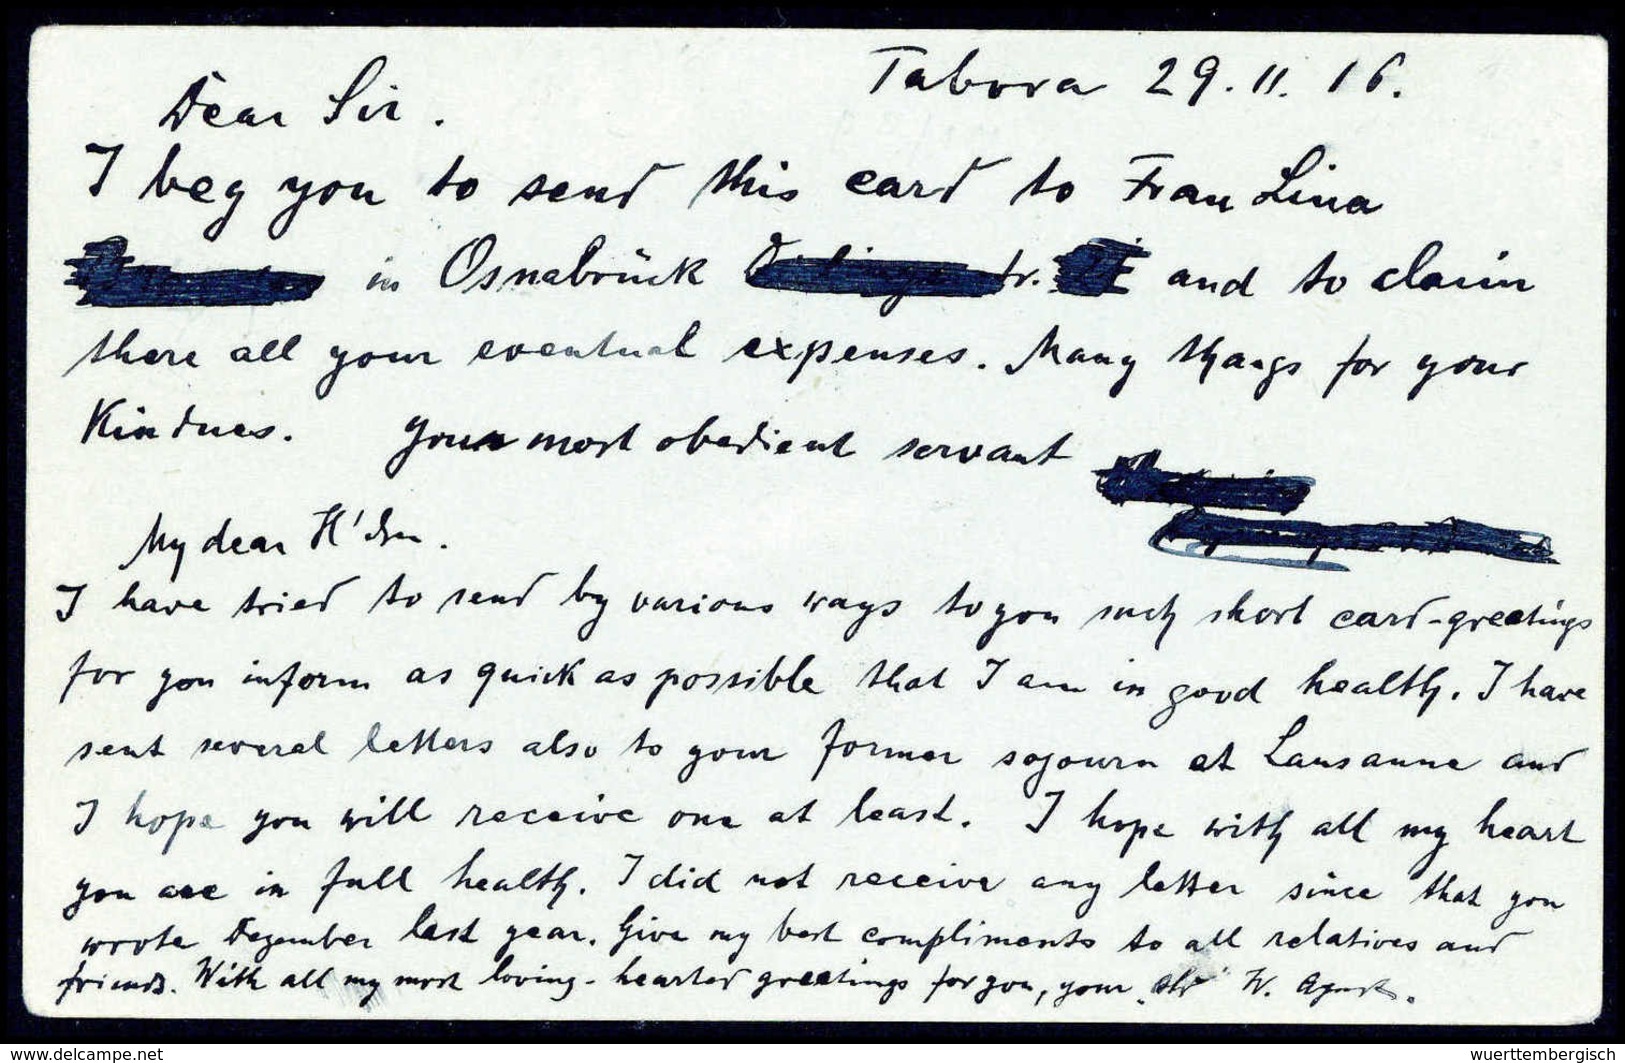 Tabora 29.11.16.
Dear Sir.
I beg you to send this card to Frau Lina
in Osnabrück tr. and to claim
there all your eventual expenses. Many thangs for your
Kindnes. your most obedient servant
My dear
I have tried to send by various ways to you such short card-greetings
for you inform as quick as possible that I am in good health. I have
sent several letters also to your former sojourn at Lausanne and
I hope you will receive one at least. I hope with all my heart
you are in full health. I did not receive any letter since that you
wrote Dezember last year. Give my best compliments to all relatives and
friends. With all my most loving-hearted greetings for you, your W.
© delcampe.net
wuerttembergisch